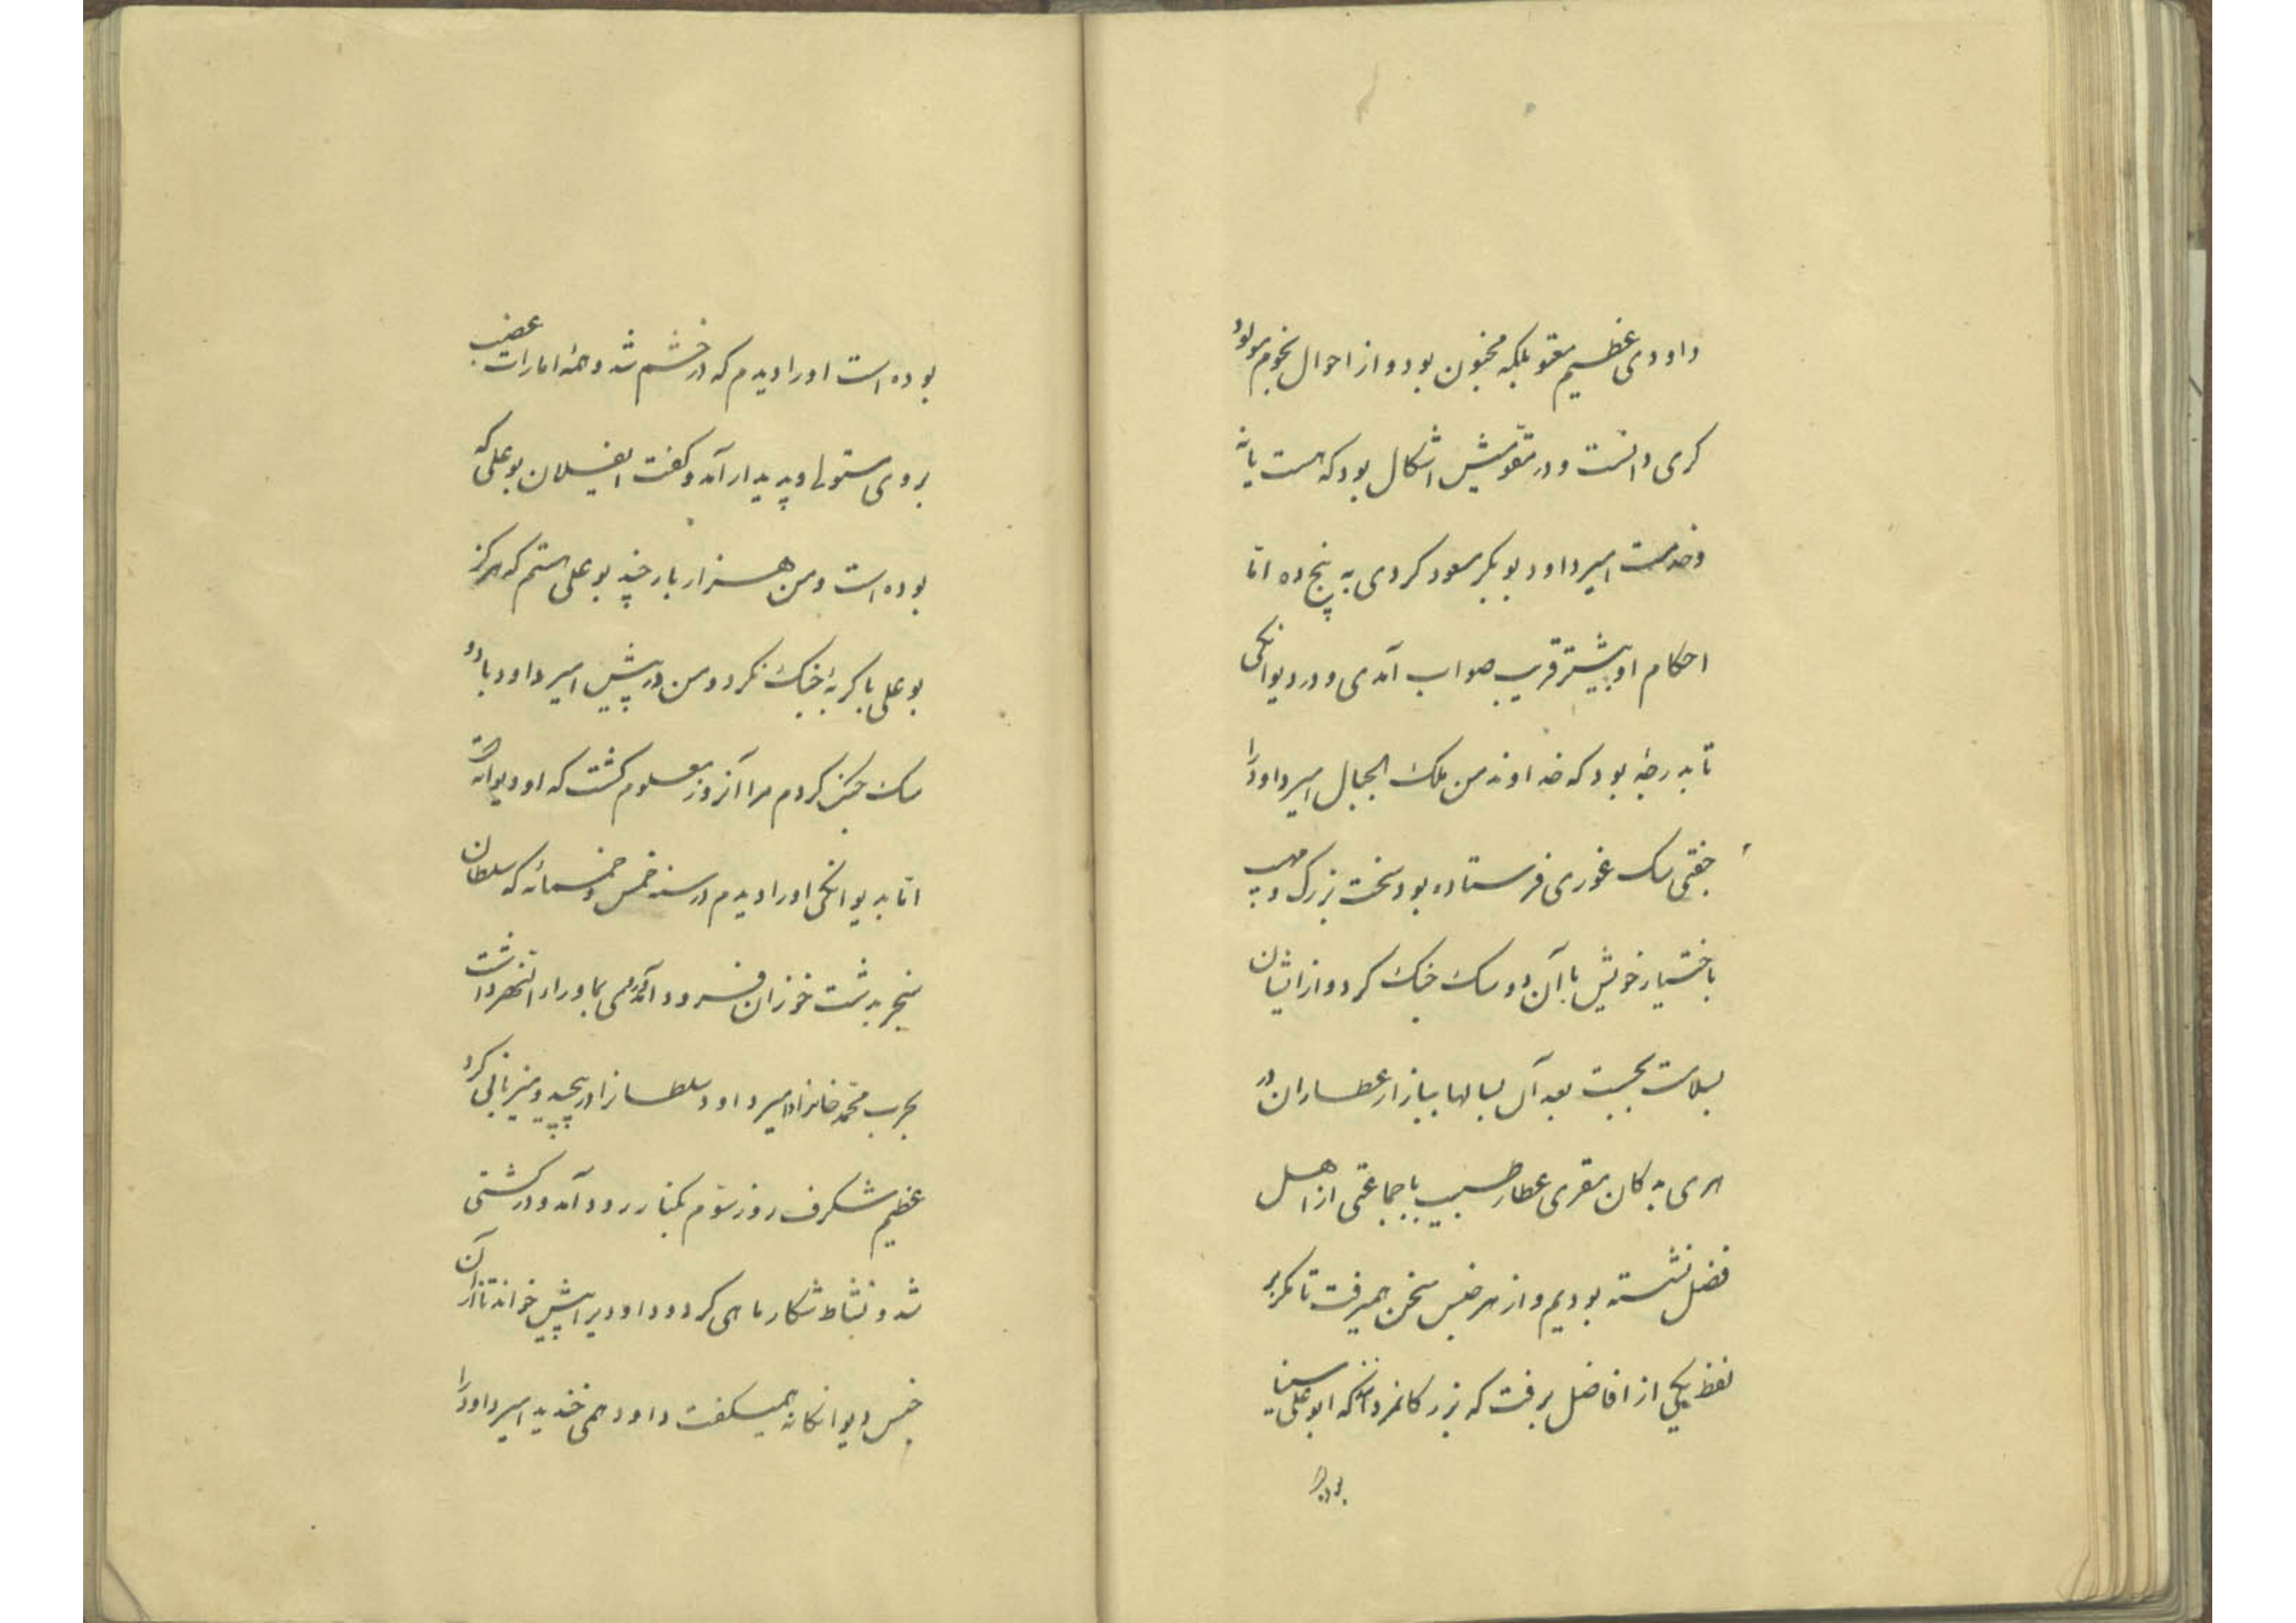 داودی عظیم معتوه بلکه مجنون بود و از احوال نجوم مولود
کری دانست و در تقویمش اشکال بود که هست یا نه
و خدمت امیر داود بوبکر مسعود کردی به پنج ده اما
احکام او بیشتر قریب صواب آمدی و در دیوانکی
تا بدرجهٔ بود که خداوند من ملک الجبال امیر داود را
جفتی سک غوری فرستاده بود سخت بزرک و مهیب
باختیار خویش با آن دو سک جنک کرد و از ایشان
بسلامت بجست بعد آن بسالها ببازار عطاران در
هری بدکان مقری عطار طبیب با جماعتی از اهل
فضل نشسته بودیم و از هر جنس سخن همیرفت تا مکر بر
لفظ یکی از افاضل برفت که بزرکا مردا که ابوعلی سینا
بوده است او را دیدم که در خشم شد و همهٔ امارات غضب
بروی مستولی و پدیدار آمد و کفت ایفلان بوعلی که
بوده است و من هزار بار چند بوعلی هستم که هرکز
بوعلی با کربهٔ جنک نکرد و من در پیش امیر داود با دو
سک جنک کردم مرا آنروز معلوم کشت که او دیوانه است
اما بدیوانکی او را دیدم در سنه خمس و خمسمائه که سلطان
سنجر بدشت خوزان فرود آمد روی بماوراء النهر داشت
بحرب محمد خان امیر داود سلطانرا در پنجدیه میزبانی کرد
عظیم شکرف روز سوم بکنار رود آمد و در کشتی
شد و نشاط شکار ماهی کرد و داودی را پیش خواند تا از آن
جنس دیوانکانه همیکفت و او همی خندید امیر داود را